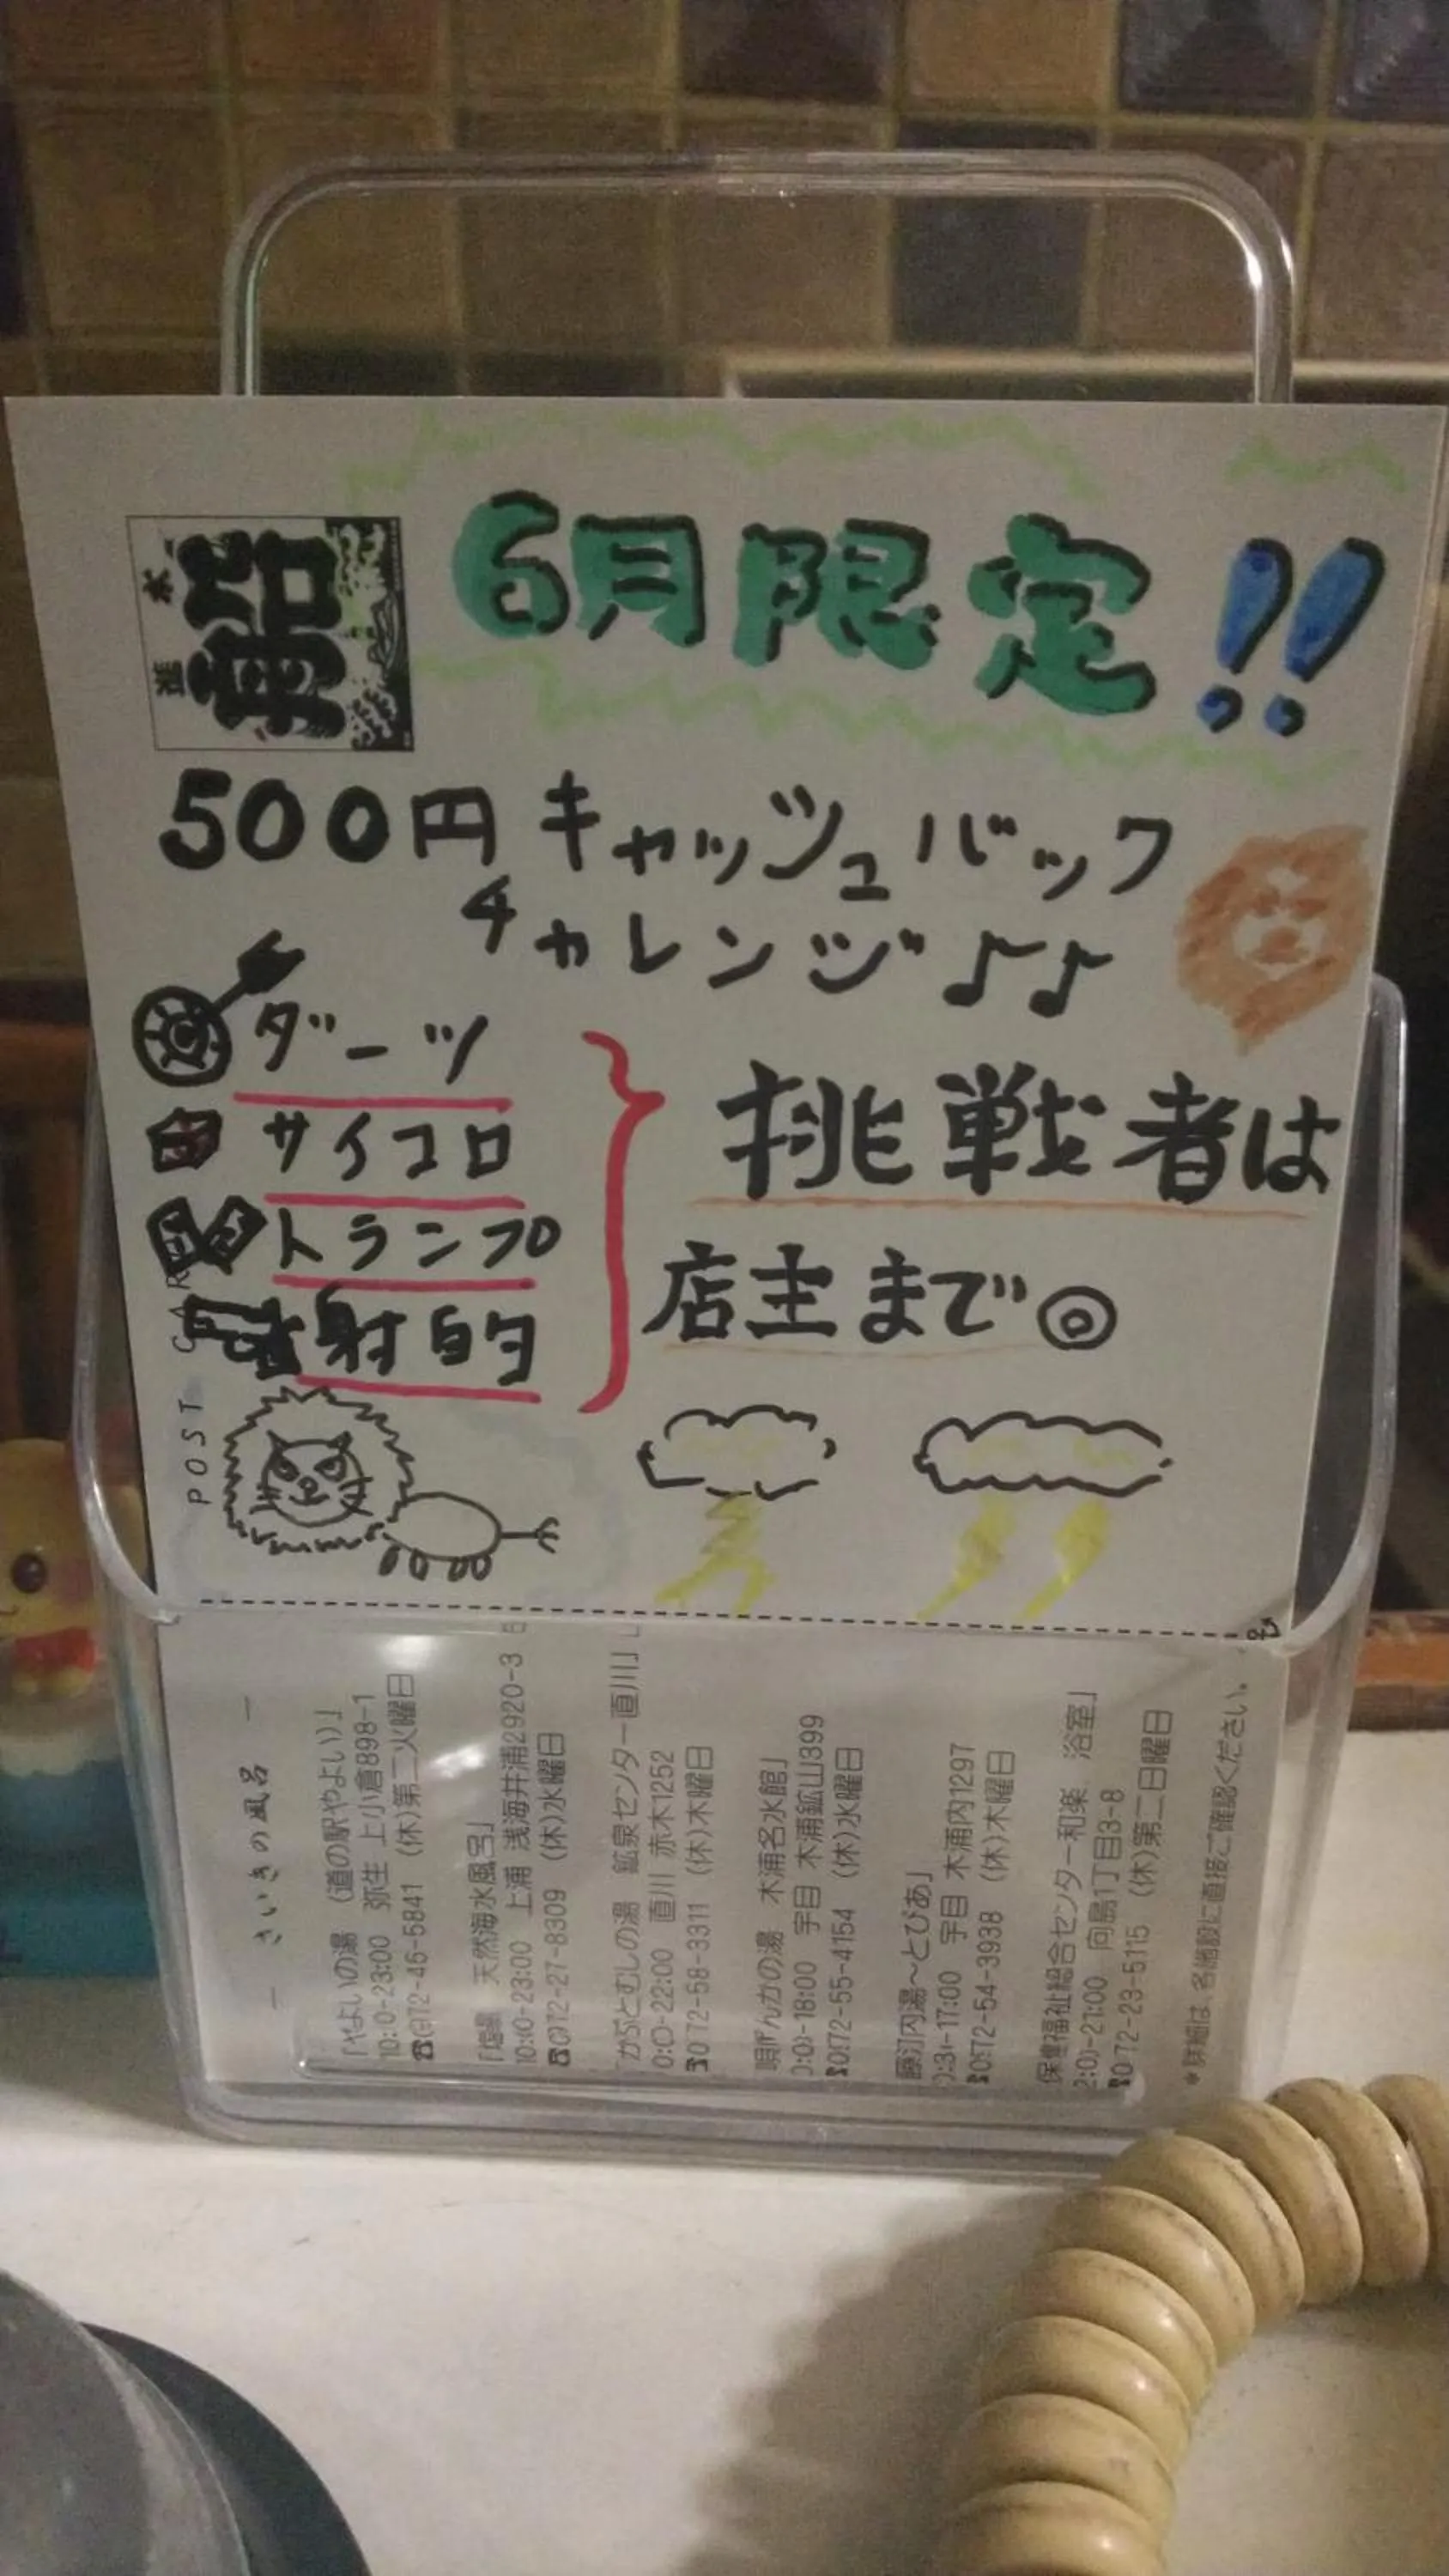 6月限定!!
500円キャッシュバック
チャレンジ♪♪
ダーツ
サイコロ
トランプ
射的
挑戦者は
店主まで◎
POST CARD
― さいきの風呂 ―
「やよいの湯 (道の駅やよい)」
10:00-23:00 弥生 上小倉898-1
☎0972-46-5841 (休)第二火曜日
「塩湯 天然海水風呂」
10:00-23:00 上浦 浅海井浦2920-3
☎0972-27-8309 (休)水曜日
「かぶとむしの湯 鉱泉センター直川」
0:00-22:00 直川 赤木1252
072-58-3311 (休)木曜日
唄げんかの湯 木浦名水館」
0:00-18:00 宇目 木浦鉱山399
072-55-4154 (休)水曜日
藤河内湯～とぴあ」
0:30-17:00 宇目 木浦内1297
072-54-3938 (休)木曜日
保健福祉総合センター和楽 浴室」
2:00-21:00 向島1丁目3-8
072-23-5115 (休)第二日曜日
*詳細は、各施設に直接ご確認ください。